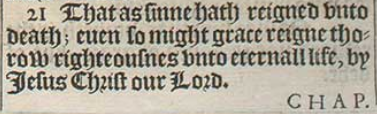 21 That as sinne hath reigned vnto
death; euen so might grace reigne tho-
row righteousnes vnto eternall life, by
Jesus Christ our Lord.
CHAP.